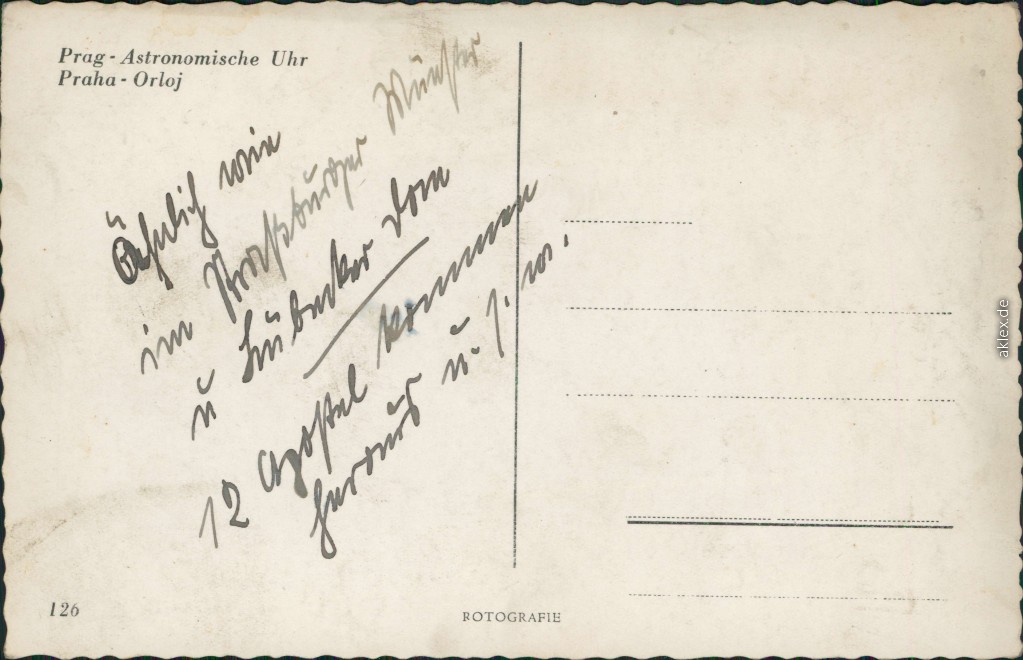 Prag - Astronomische Uhr
Praha - Orloj
Ähnlich wie
im Straßburger Münster
u Lübecker Dom
12 Apostel kommen
heraus u. s. w.
126
ROTOGRAFIE
aklex.de